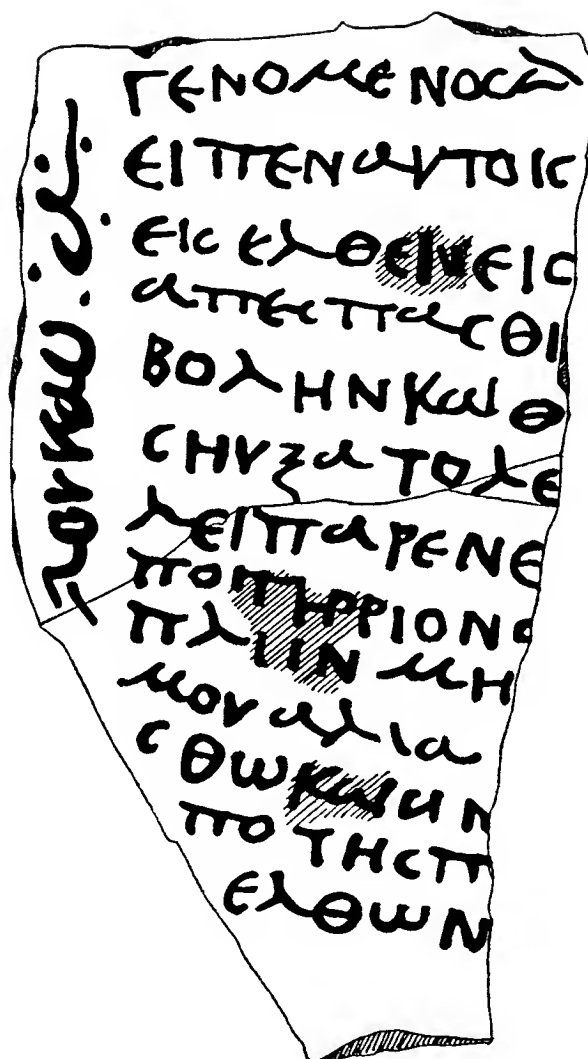 ΓΕΝΟΜΕΝΟCΔ
ΕΙΠΕΝΑΥΤΟΙC
ΕΙCΕΛΘΕΙΝΕΙC
ΑΠΕCΠΑCΘΙ
ΒΟΛΗΝΚΑΙΘ
CΗΥΞΑΤΟΛΕ
ΛΕΙΠΑΡΕΝΕ
ΠΟΤΗΡΡΙΟΝC
ΠΛΗΝΜΗ
ΜΟΥΑΛΙΑ
CΘΩΚΑΙΗΝ
ΠΟΤΗCΠ
ΕΛΘΩΝ
ΛΟΥΚΑΥ